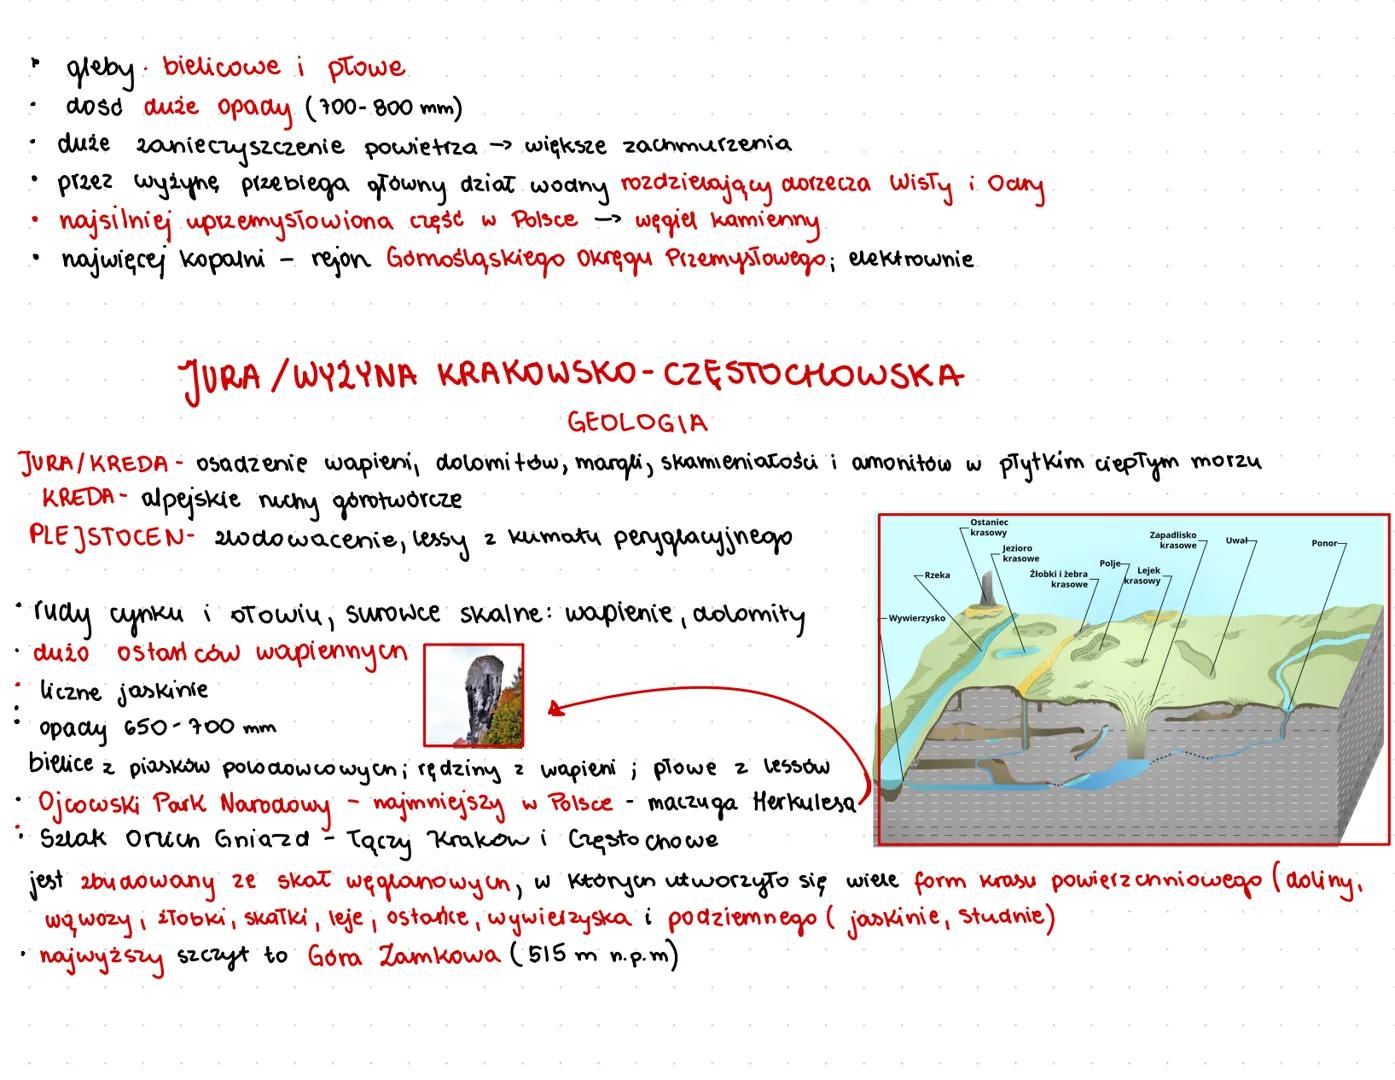 • gleby - bielicowe i płowe
• dość duże opady (700-800 mm)
• duże zanieczyszczenie powietrza → większe zachmurzenia
• przez wyżynę przebiega główny dział wodny rozdzielający dorzecza Wisły i Odry
• najsilniej uprzemysłowiona część w Polsce → węgiel kamienny
• najwięcej kopalni - rejon Górnośląskiego Okręgu Przemysłowego; elektrownie
JURA/WYŻYNA KRAKOWSKO-CZĘSTOCHOWSKA
GEOLOGIA
JURA/KREDA - osadzenie wapieni, dolomitów, margli, skamieniałości i amonitów w płytkim ciepłym morzu
KREDA - alpejskie ruchy górotwórcze
PLEJSTOCEN - zlodowacenie, lessy z klimatu peryglacyjnego
• rudy cynku i ołowiu, surowce skalne: wapienie, dolomity
• dużo ostańców wapiennych
• liczne jaskinie
• opady 650-700 mm
bielice z piasków polodowcowych; rędziny z wapieni; płowe z lessów
• Ojcowski Park Narodowy - najmniejszy w Polsce - maczuga Herkulesa
• Szlak Orlich Gniazd - łączy Kraków i Częstochowe
jest zbudowany ze skał węglanowych, w których utworzyło się wiele form krasu powierzchniowego (doliny,
wąwozy, żłobki, skałki, leje, ostańce, wywierzyska i podziemnego (jaskinie, studnie)
• najwyższy szczyt to Góra Zamkowa (515 m n.p.m)
Ostaniec
krasowy
Jezioro
krasowe
Rzeka
Wywierzysko
Żłobki i żebra
krasowe
Polje
Lejek
krasowy
Zapadlisko
krasowe
Uwał
Ponor